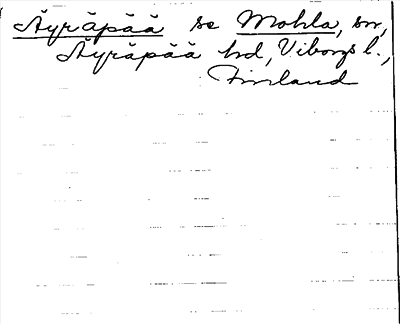 Äyräpää se Mohla, sn,
Äyräpää hd, Viborgs l.,
Finland